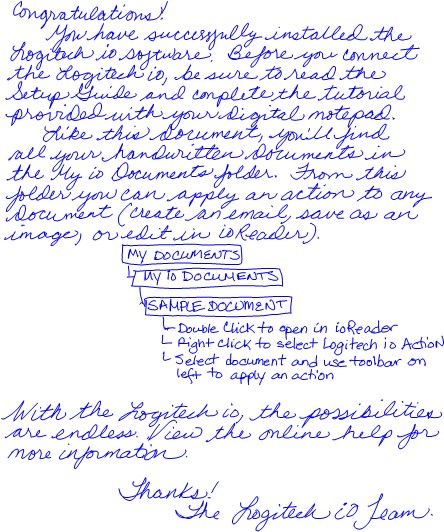 Congratulations!
You have successfully installed the
Logitech io software. Before you connect
the Logitech io, be sure to read the
Setup Guide and complete the tutorial
provided with your digital notepad.
Like this document, you'll find
all your handwritten documents in
the My io Documents folder. From this
folder you can apply an action to any
document (create an email, save as an
image, or edit in ioReader).
MY DOCUMENTS
MY IO DOCUMENTS
SAMPLE DOCUMENT
Double Click to open in ioReader
Right click to select Logitech io Action
Select document and use toolbar on
left to apply an action
With the Logitech io, the possibilities
are endless. View the online help for
more information.
Thanks!
The Logitech iO Team.